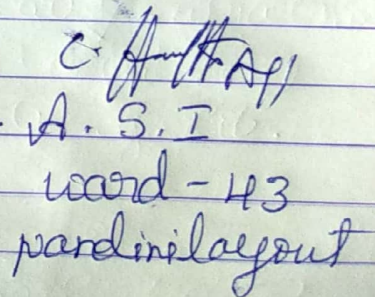 A. S. I
ward - 43
nandinilayout